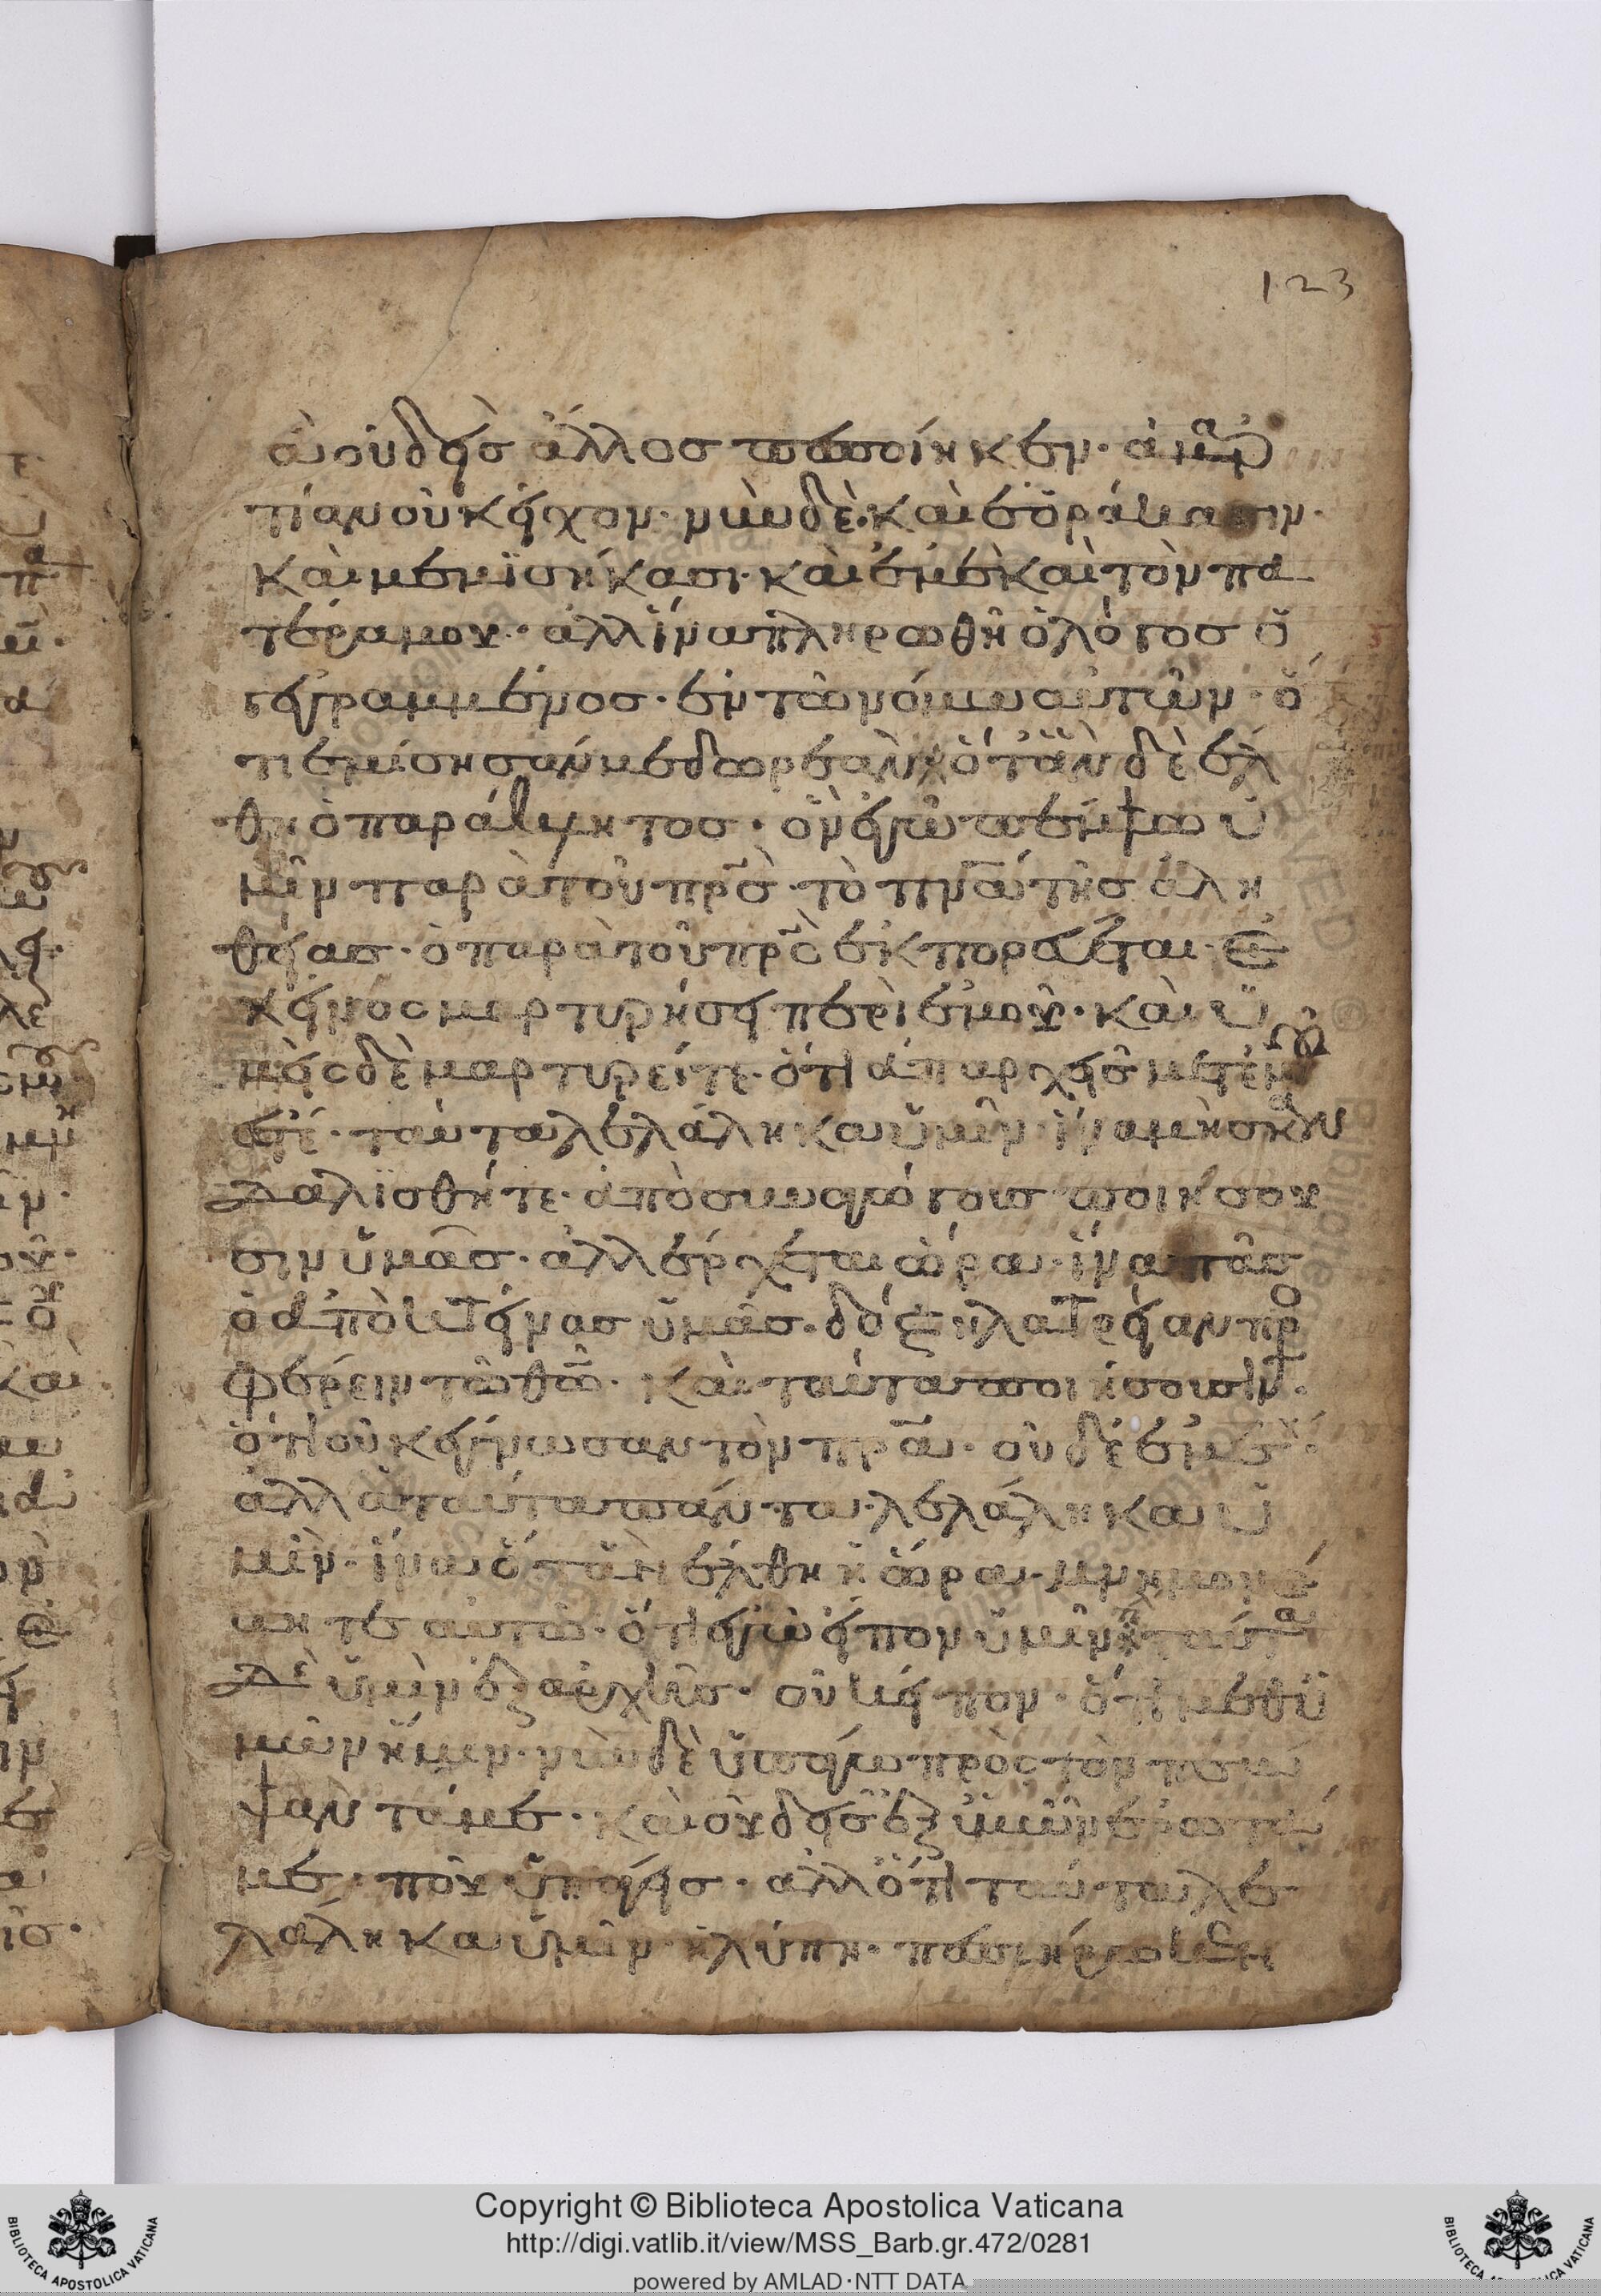 123
ἃ οὐδεὶς ἄλλος πεποίηκεν· ἁμαρ
τίαν οὐκ εἶχον· νῦν δὲ καὶ ἑοράκασιν·
καὶ μεμισήκασι· καὶ ἐμὲ καὶ τὸν πα
τέρα μου· ἀλλ ἵνα πληρωθῆ ὁ λόγος ὁ
γεγραμμένος· ἐν τῶ νόμω αὐτῶν· ὅ
τι ἐμίσησάν με δωρεάν ὅταν δὲ ἔλ
θη ὁ παράκλητος· ὃν ἐγὼ πέμψω ὑ
μῖν παρὰ τοῦ πρς· τὸ πνα τῆς ἀλη
θείας· ὃ παρὰ τοῦ πρς ἐκπορεύεται· ἐ
κεῖνος μαρτυρήσει περὶ ἐμοῦ· καὶ ὑ
μεῖς δὲ μαρτυρεῖτε· ὅτι ἀπ αρχῆς μετ ἐμοῦ
ἐστέ· ταῦτα λελάληκα ὑμῖν· ἵνα μὴ σκαν
δαλισθῆτε· ἀποσυναγώγους ποιήσου
σιν ὑμᾶς· ἀλλ ἔρχεται ὥρα· ἵνα πᾶς
ὁ ἀποκτείνας ὑμᾶς· δόξη λατρείαν προσ
φέρειν τῶ θῶ· καὶ ταῦτα ποιήσουσιν·
ὅτι οὐκ ἔγνωσαν τὸν πρα· οὐδὲ ἐμέ·
ἀλλὰ ταῦτα πάντα λελάληκα ὑ
μῖν· ἵνα ὅταν ἔλθη ἡ ὥρα· μνημονεύ
ητε αὐτῶ· ὅτι ἐγὼ εἶπον ὑμῖν ταῦτα
δὲ ὑμῖν ἐξ ἀρχῆς· οὐκ εἶπον· ὅτι μεθ ὑ
μῶν ἤμην· νῦν δὲ ὑπάγω πρὸς τὸν πέμ
ψαντά με· καὶ οὐδεὶς ἐξ ὑμῶν ἐρωτᾶ
με· ποῦ ὑπάγεις· ἀλλ ὅτι ταῦτα λε
λάληκα ὑμῖν· ἡ λύπη·
Copyright © Biblioteca Apostolica Vaticana
http://digi.vatlib.it/view/MSS_Barb.gr.472/0281
powered by AMLAD·NTT DATA
BIBLIOTECA APOSTOLICA VATICANA
BIBLIOTECA APOSTOLICA VATICANA